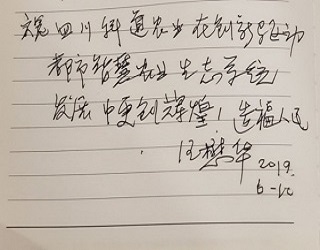 祝四川科道农业在创新驱动
都市智慧农业生态系统
发展中更创辉煌，造福人民
汪懋华 2019.
6-12